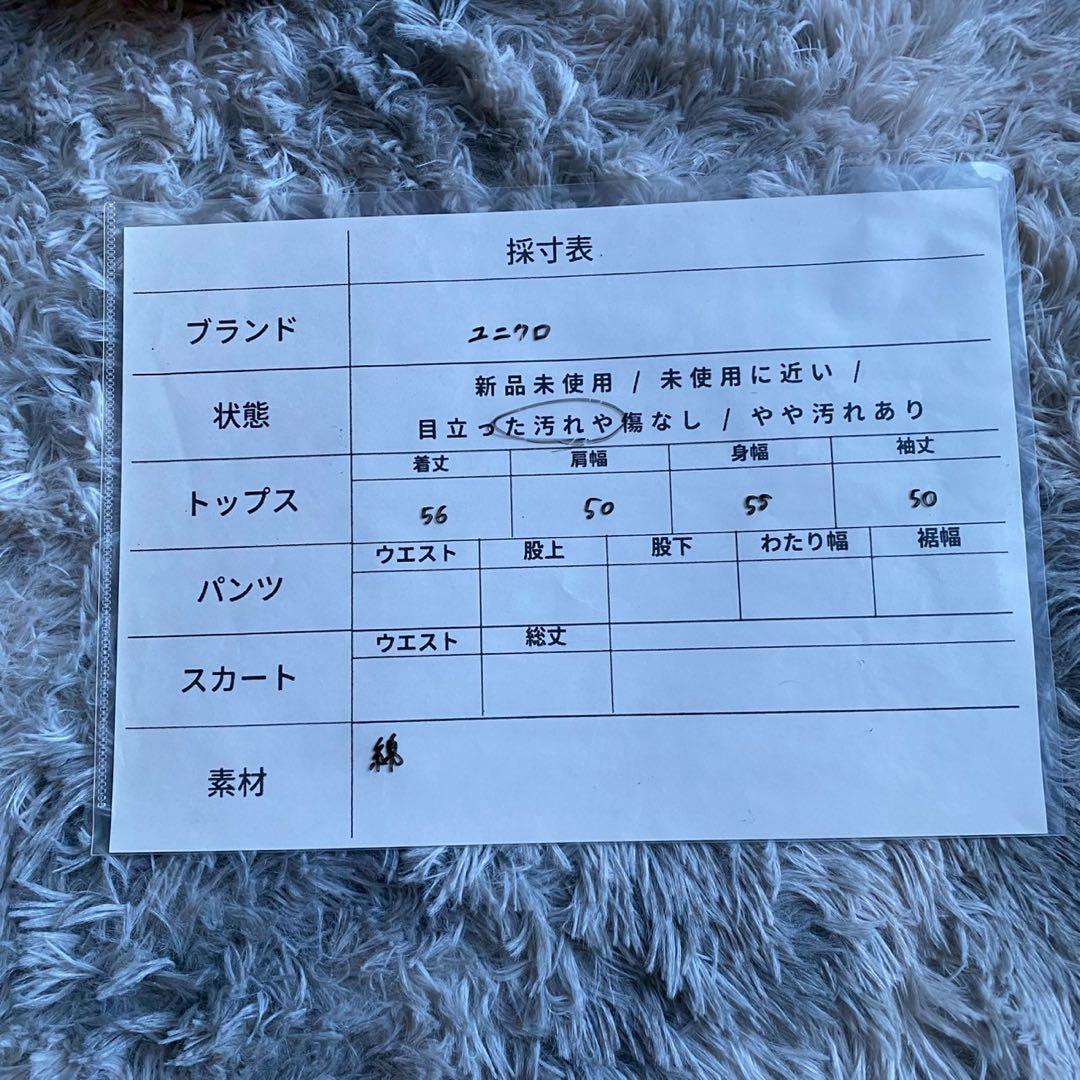 採寸表
ブランド ユニクロ
状態 新品未使用 / 未使用に近い /
目立った汚れや傷なし / やや汚れあり
着丈 肩幅 身幅 袖丈
トップス 56 50 55 50
ウエスト 股上 股下 わたり幅 裾幅
パンツ
ウエスト 総丈
スカート
素材 綿